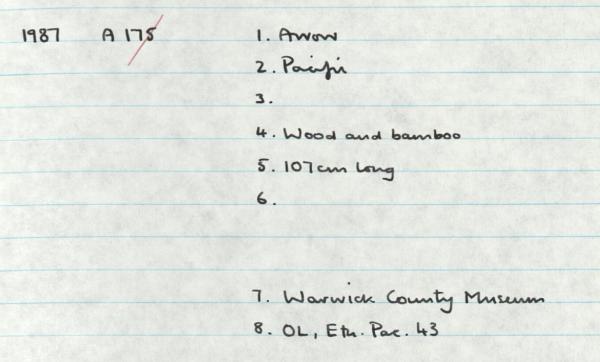 1987 A 175 1. Arrow
2. Pacific
3.
4. Wood and bamboo
5. 107cm long
6.
7. Warwick County Museum
8. OL, Eth. Pac. 43